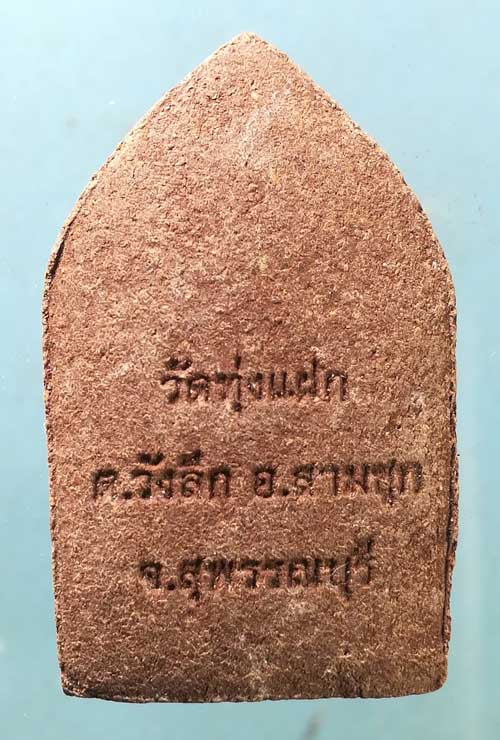 วัดทุ่งแฝก
ต.วังลึก อ.สามชุก
จ.สุพรรณบุรี